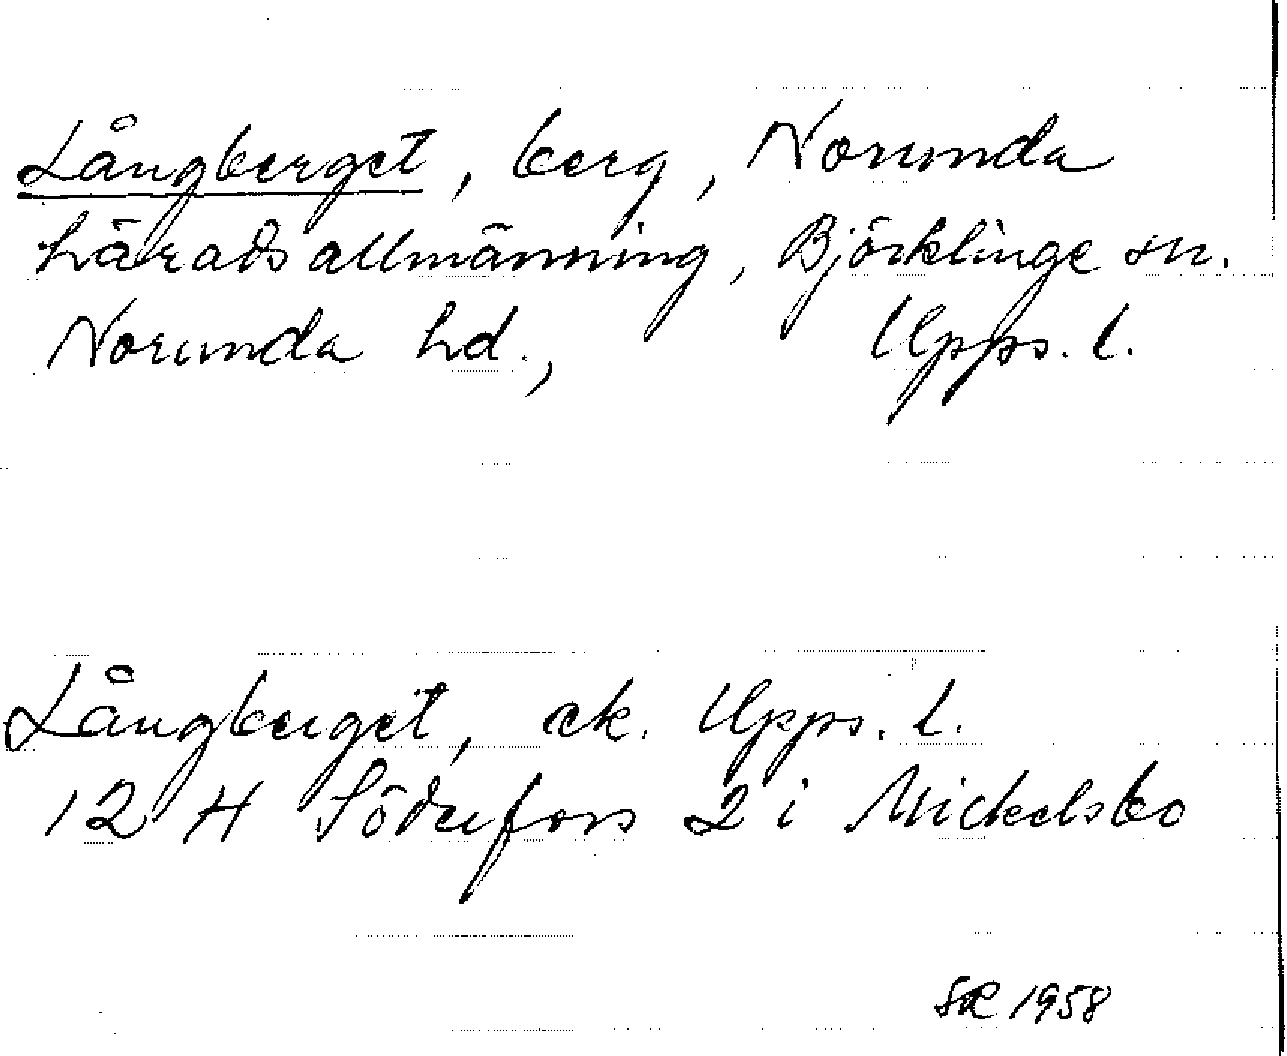 Långberget, berg, Norunda
häradsallmänning, Björklinge sn.
Norunda hd., Upps. l.
Långberget, ek. Upps. l.
12 H Söderfors 2 i Mickelsbo
SR 1958